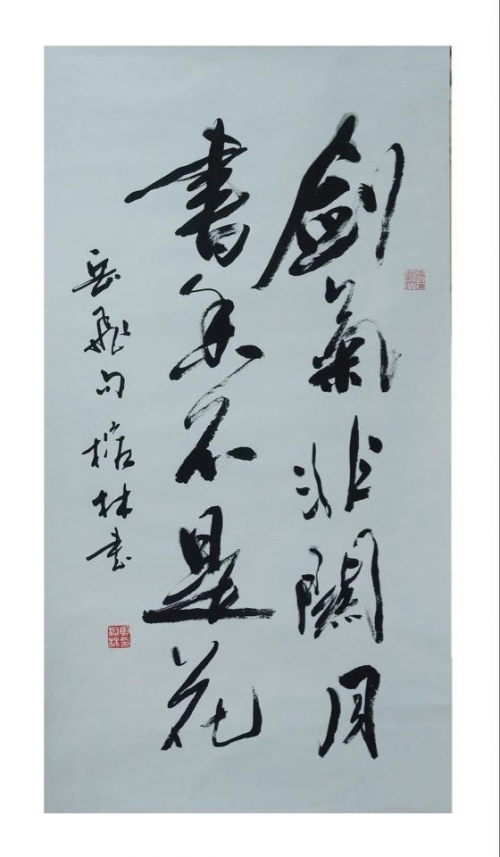 劍氣非關月
書香不是花
岳飛句 林書